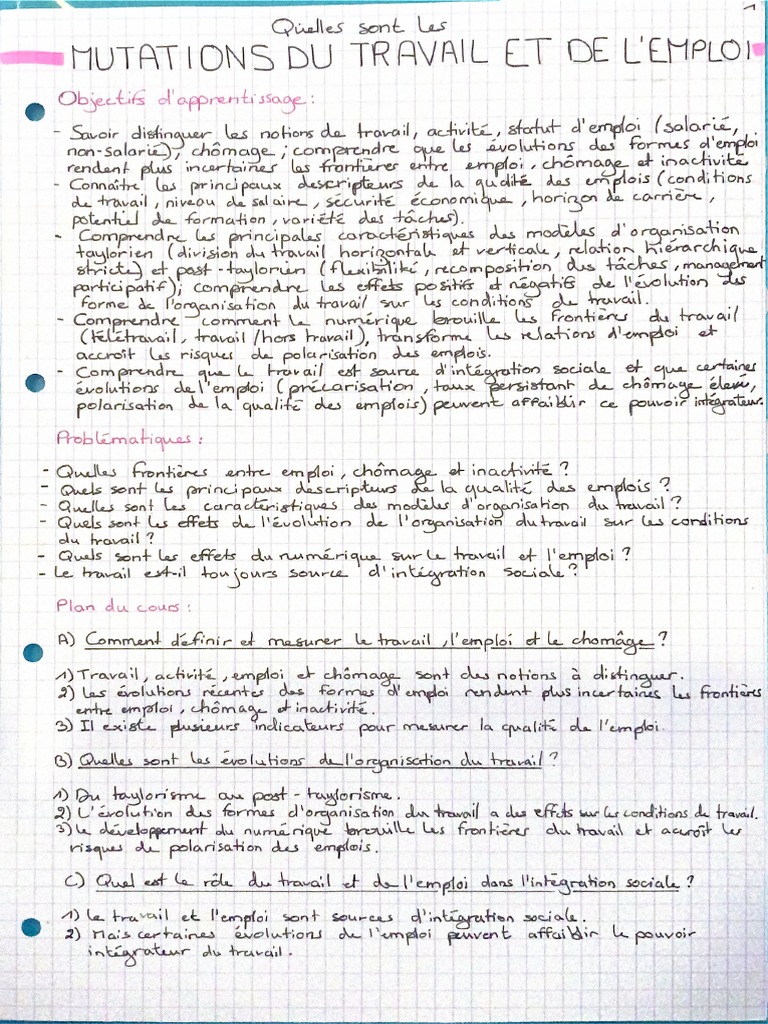 1
Quelles sont les
MUTATIONS DU TRAVAIL ET DE L'EMPLOI
Objectifs d'apprentissage :
- Savoir distinguer les notions de travail, activité, statut d'emploi (salarié,
non-salarié), chômage ; comprendre que les évolutions des formes d'emploi
rendent plus incertaines les frontières entre emploi, chômage et inactivité
- Connaître les principaux descripteurs de la qualité des emplois (conditions
de travail, niveau de salaire, sécurité économique, horizon de carrière,
potentiel de formation, variété des tâches).
- Comprendre les principales caractéristiques des modèles d'organisation
taylorien (division du travail horizontale et verticale, relation hiérarchique
stricte) et post-taylorien (flexibilité, recomposition des tâches, management
participatif) ; comprendre les effets positifs et négatifs de l'évolution des
forme de l'organisation du travail sur les conditions de travail.
- Comprendre comment le numérique brouille les frontières du travail
(télétravail, travail/hors travail), transforme les relations d'emploi et
accroît les risques de polarisation des emplois.
- Comprendre que le travail est source d'intégration sociale et que certaines
évolutions de l'emploi (précarisation, taux persistant de chômage élevé,
polarisation de la qualité des emplois) peuvent affaiblir ce pouvoir intégrateur.
Problématiques :
- Quelles frontières entre emploi, chômage et inactivité ?
- Quels sont les principaux descripteurs de la qualité des emplois ?
- Quelles sont les caractéristiques des modèles d'organisation du travail ?
- Quels sont les effets de l'évolution de l'organisation du travail sur les conditions
du travail ?
- Quels sont les effets du numérique sur le travail et l'emploi ?
- Le travail est-il toujours source d'intégration sociale ?
Plan du cours :
A) Comment définir et mesurer le travail, l'emploi et le chomâge ?
1) Travail, activité, emploi et chômage sont des notions à distinguer.
2) Les évolutions récentes des formes d'emploi rendent plus incertaines les frontières
entre emploi, chômage et inactivité.
3) Il existe plusieurs indicateurs pour mesurer la qualité de l'emploi.
B) Quelles sont les évolutions de l'organisation du travail ?
1) Du taylorisme au post-taylorisme.
2) L'évolution des formes d'organisation du travail a des effets sur les conditions de travail.
3) Le développement du numérique brouille les frontières du travail et accroît les
risques de polarisation des emplois.
C) Quel est le rôle du travail et de l'emploi dans l'intégration sociale ?
1) Le travail et l'emploi sont sources d'intégration sociale.
2) Mais certaines évolutions de l'emploi peuvent affaiblir le pouvoir
intégrateur du travail.